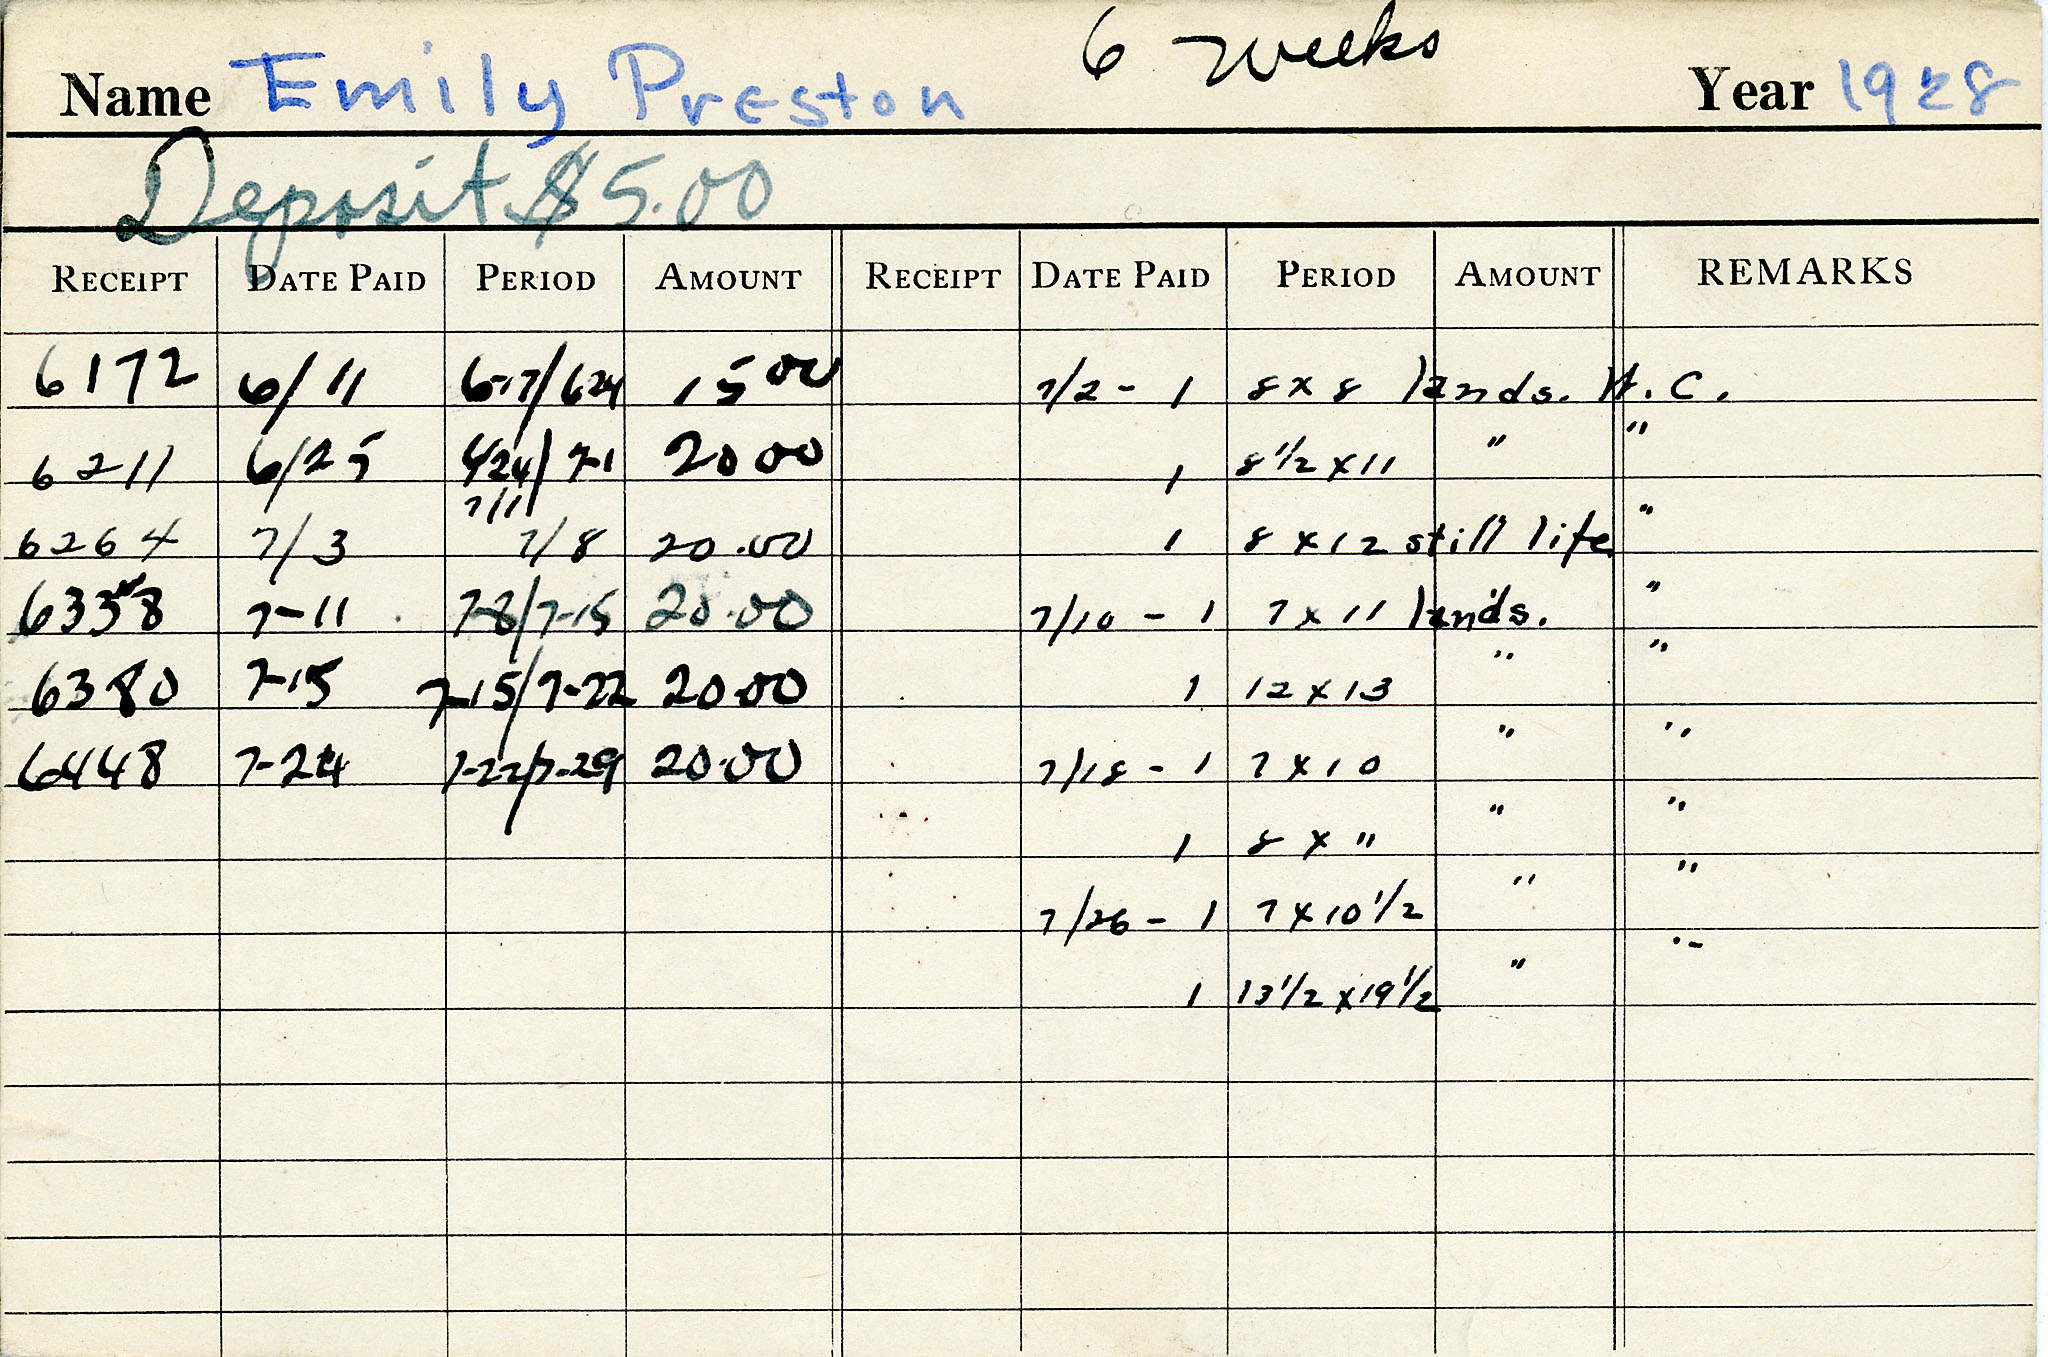 6 weeks
Name Emily Preston Year 1928
Deposit $5.00
RECEIPT DATE PAID PERIOD AMOUNT RECEIPT DATE PAID PERIOD AMOUNT REMARKS
6172 6/11 6-17/6 24 15 00 7/2 - 1 8 x 8 lands. W. C.
6211 6/25 6/24/7-1 20 00 1 8 1/2 x 11 " "
7/1/
6264 7/3 7/8 20.00 1 8 x 12 still life "
6358 7-11 7-8/7-15 20.00 7/10 - 1 7 x 11 lands. "
6380 7-15 7-15/7-22 20.00 1 12 x 13 " "
6448 7-24 7-22/7-29 20.00 7/18 - 1 7 x 10 " "
1 8 x " " "
7/26 - 1 7 x 10 1/2 " "
1 13 1/2 x 19 1/2 " "